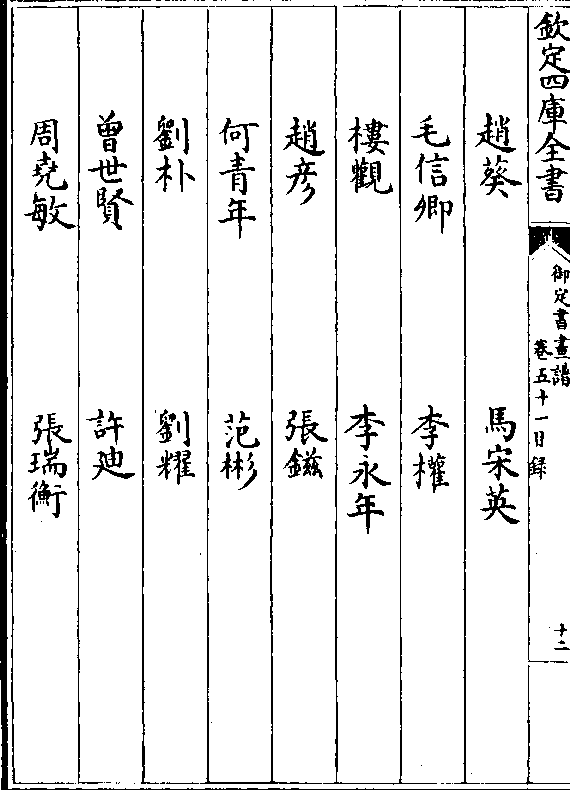 欽定四庫全書
御定書畫譜
卷五十一目録
十二
趙葵 馬宋英
毛信卿 李權
樓觀 李永年
趙彦 張鎡
何青年 范彬
劉朴 劉耀
曾世賢 許迪
周堯敏 張瑞衡